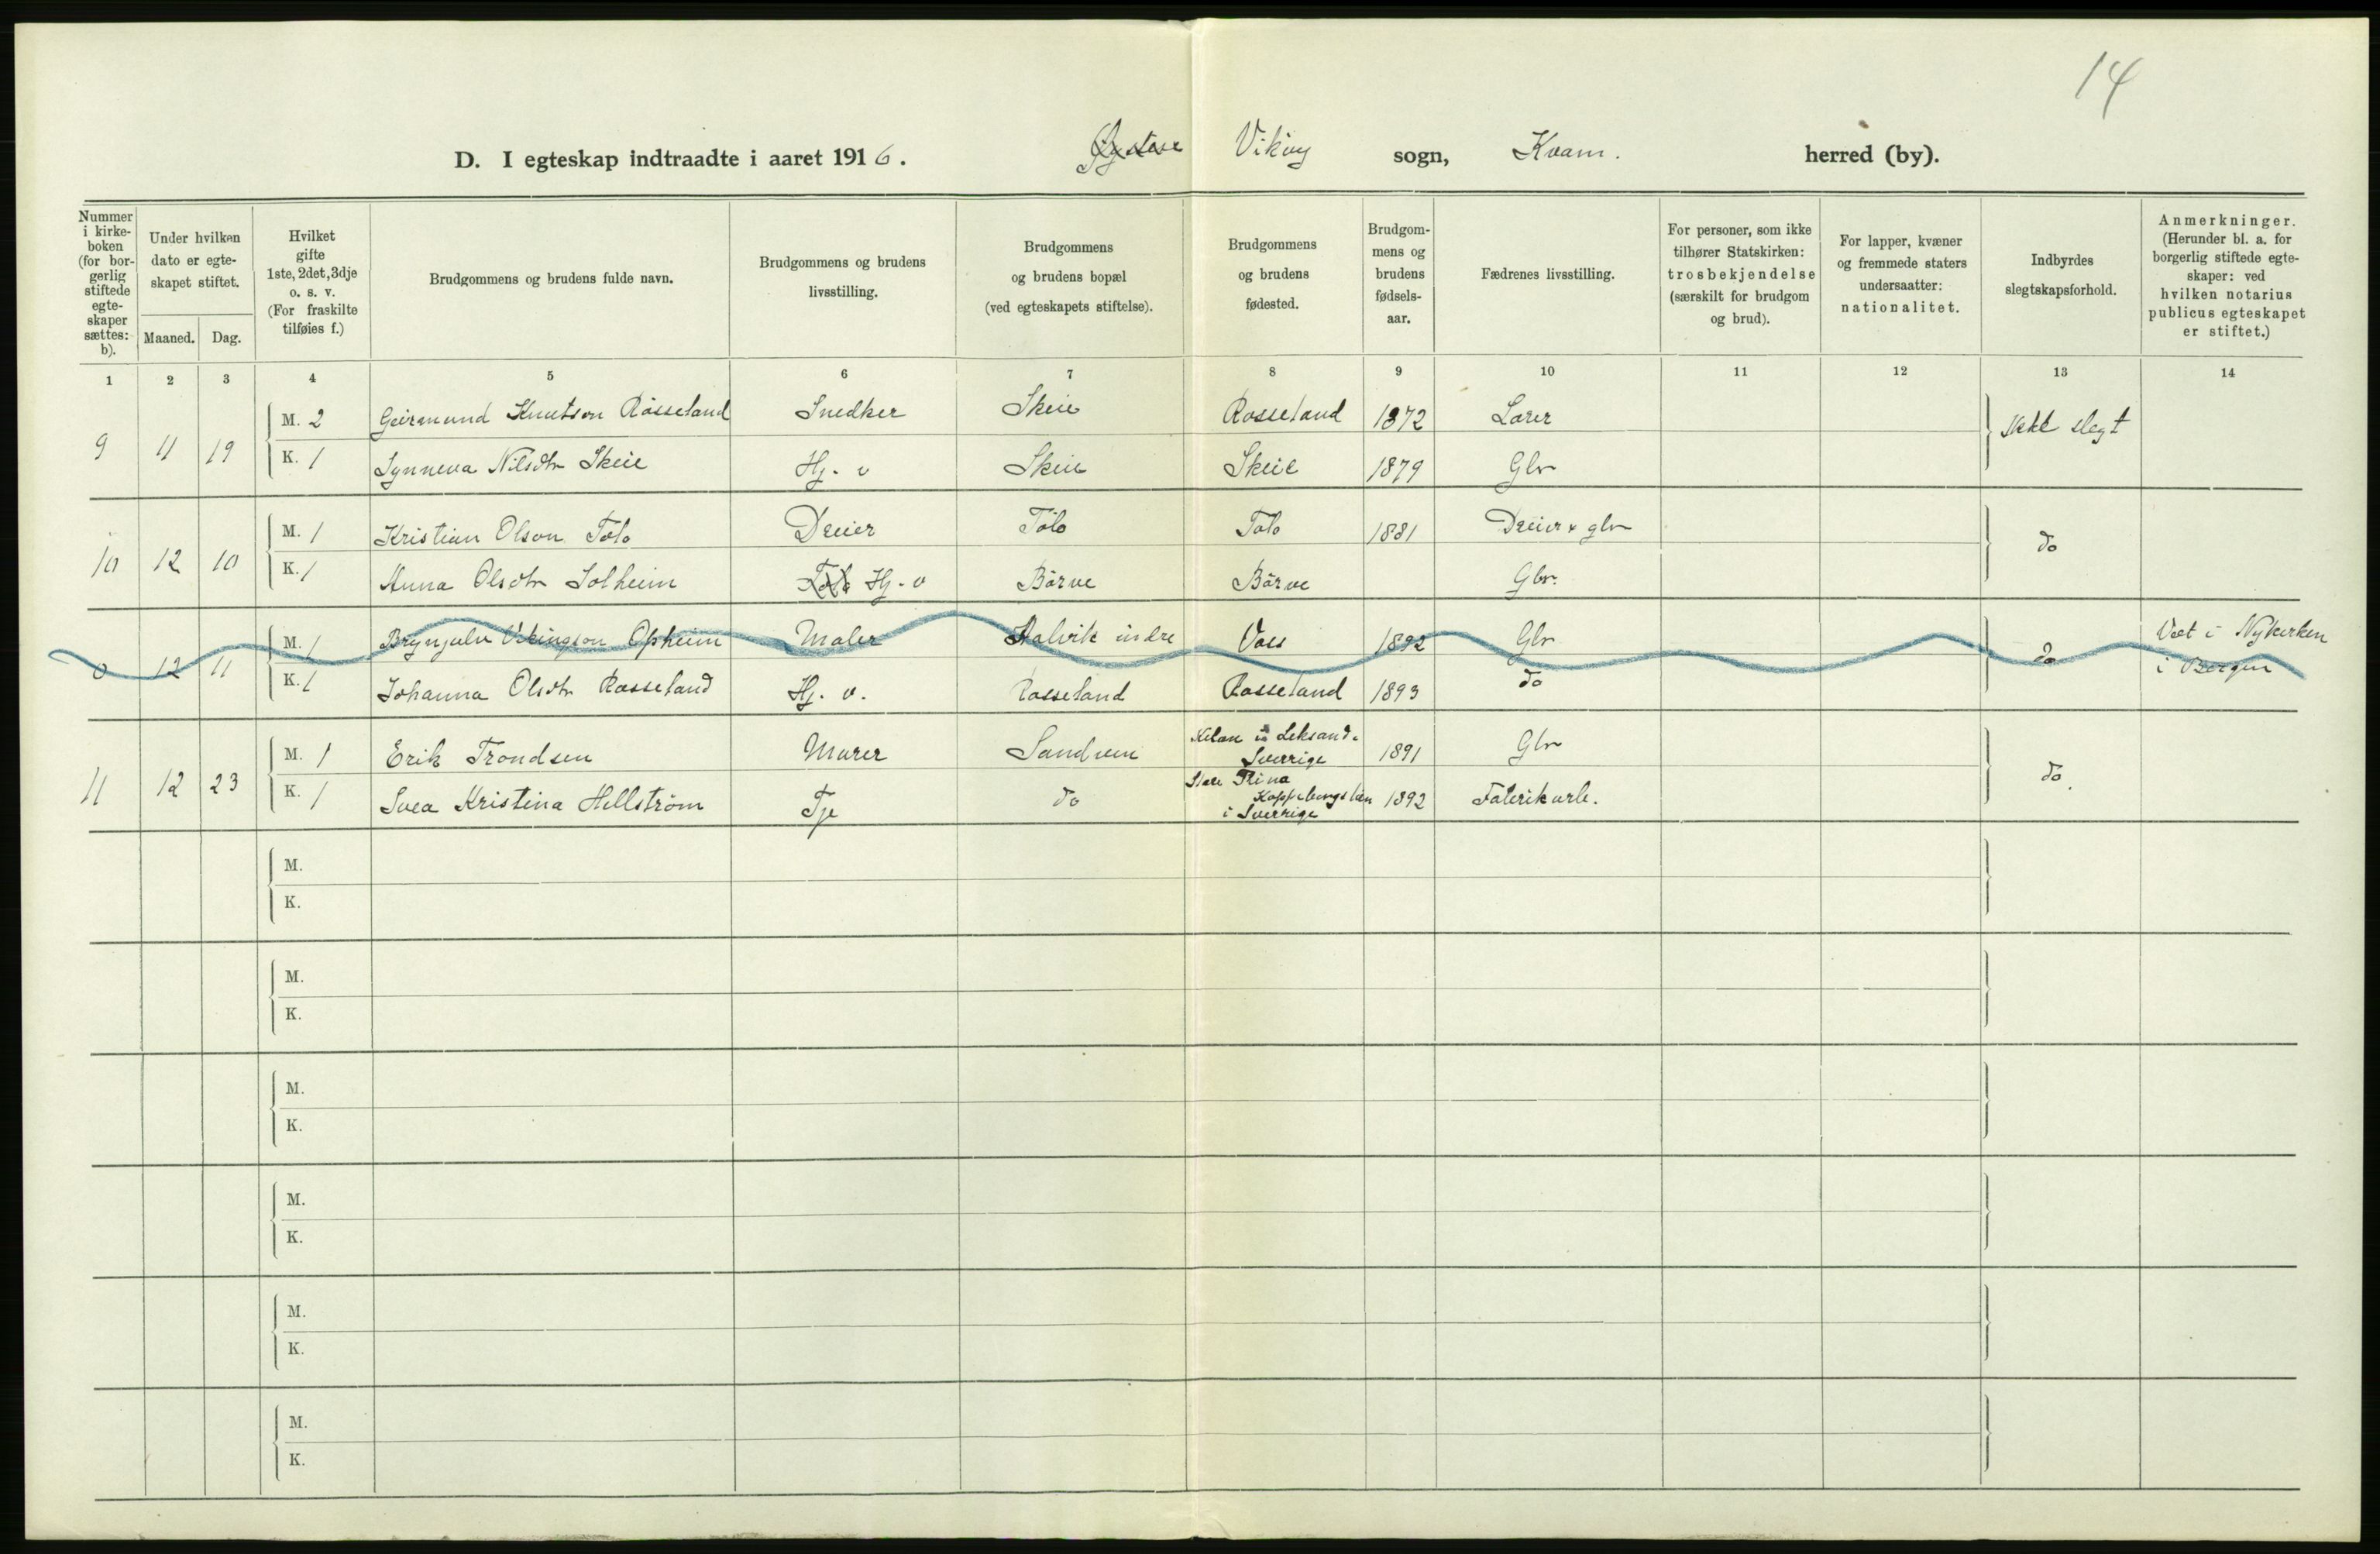 14
D. I egteskap indtraadte i aaret 1916. Viköy sogn, Kvam. herred (by).
Nummer i kirke-boken (for bor-gerlig stiftede egte-skaper sættes: b).
Under hvilken dato er egte-skapet stiftet.
Maaned. Dag.
Hvilket gifte 1ste, 2det, 3dje o. s. v. (For fraskilte tilføies f.)
Brudgommens og brudens fulde navn.
Brudgommens og brudens livsstilling.
Brudgommens og brudens bopæl (ved egteskapets stiftelse).
Brudgommens og brudens fødested.
Brudgom-mens og brudens fødsels-aar.
Fædrenes livsstilling.
For personer, som ikke tilhører Statskirken: trosbekjendelse (særskilt for brudgom og brud).
For lapper, kvæner og fremmede staters undersaatter: nationalitet.
Indbyrdes slegtskapsforhold.
Anmerkninger. (Herunder bl. a. for borgerlig stiftede egte-skaper: ved hvilken notarius publicus egteskapet er stiftet.)
1 2 3 4 5 6 7 8 9 10 11 12 13 14
9 11 19 M. 2 Geirmund Knutson Rosseland Snedker Skeie Rosseland 1872 Lærer Ikke slegt
K. 1 Synneva Nilsdtr Skeie Hj. v Skeie Skeie 1879 Gbr
10 12 10 M. 1 Kristian Olson Tolo Dreier Tolo Tolo 1881 Dreier & gbr do
K. 1 Anna Olsdtr Solheim Hj. v Börve Börve Gbr.
0 12 11 M. 1 Brynjulv Vikingson Opheim Maler Aalvik indre Voss 1892 Gbr do Viet i Nykirken
K. 1 Johanna Olsdtr Rosseland Hj. v. Rosseland Rosseland 1893 do i Bergen
11 12 23 M. 1 Erik Trondsen Murer Sandven Leksand. Sverrige 1891 Gbr do.
K. 1 Svea Kristina Hellström Tje do Kopparbergs län i Sverrige 1892 Fabrikarb.
M.
K.
M.
K.
M.
K.
M.
K.
M.
K.
M.
K.